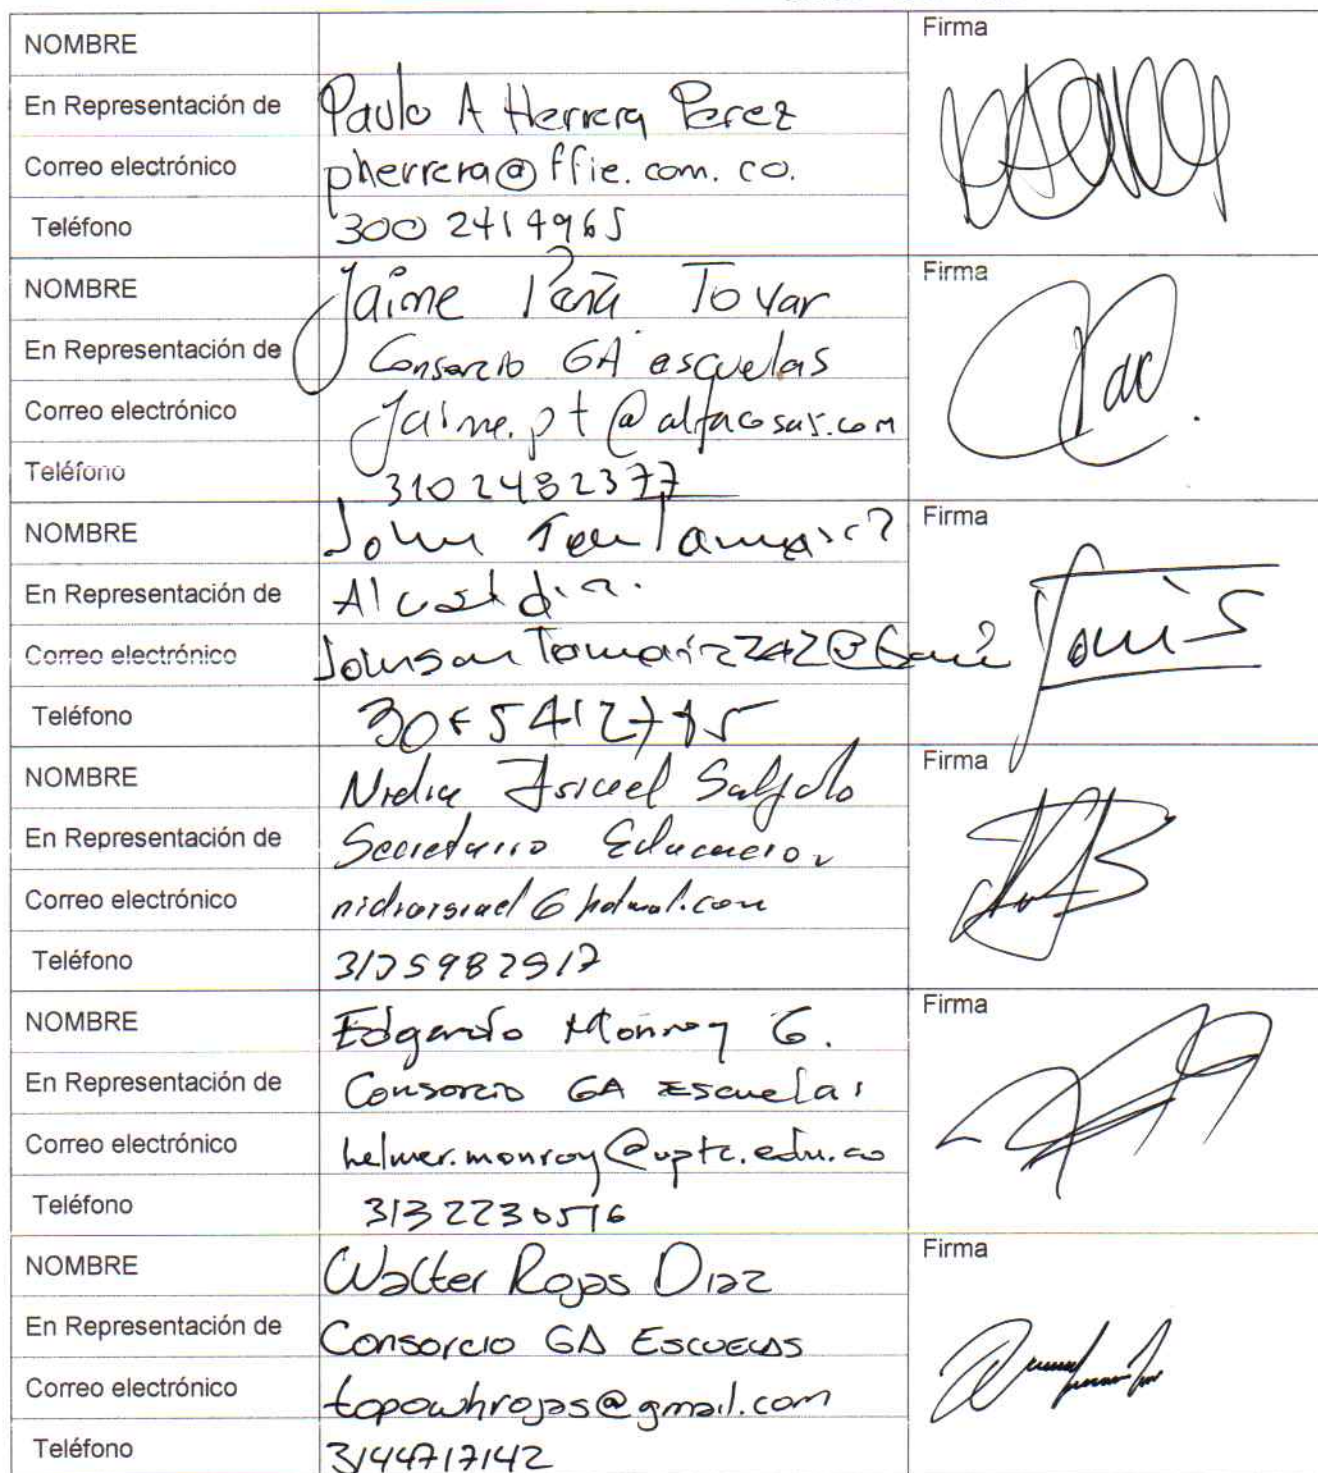 NOMBRE
Firma
En Representación de Paulo A Herrera Perez
Correo electrónico pherrera@ffie.com.co.
Teléfono 300 2414965
NOMBRE Jaime Peña Tovar
Firma
En Representación de Consorcio GA escuelas
Correo electrónico Jaime.pt@alfacosas.com
Teléfono 3102482377
NOMBRE John
Firma
En Representación de Alcaldia.
Correo electrónico
Teléfono
NOMBRE Nidia Israel Salgado
Firma
En Representación de Secretario Educacion
Correo electrónico
Teléfono
NOMBRE Edgardo Monroy G.
Firma
En Representación de Consorcio GA Escuelas
Correo electrónico helmer.monroy@uptc.edu.co
Teléfono 3132230516
NOMBRE Walter Rojas Diaz
Firma
En Representación de Consorcio GA ESCUELAS
Correo electrónico topowhrojas@gmail.com
Teléfono 3144717142